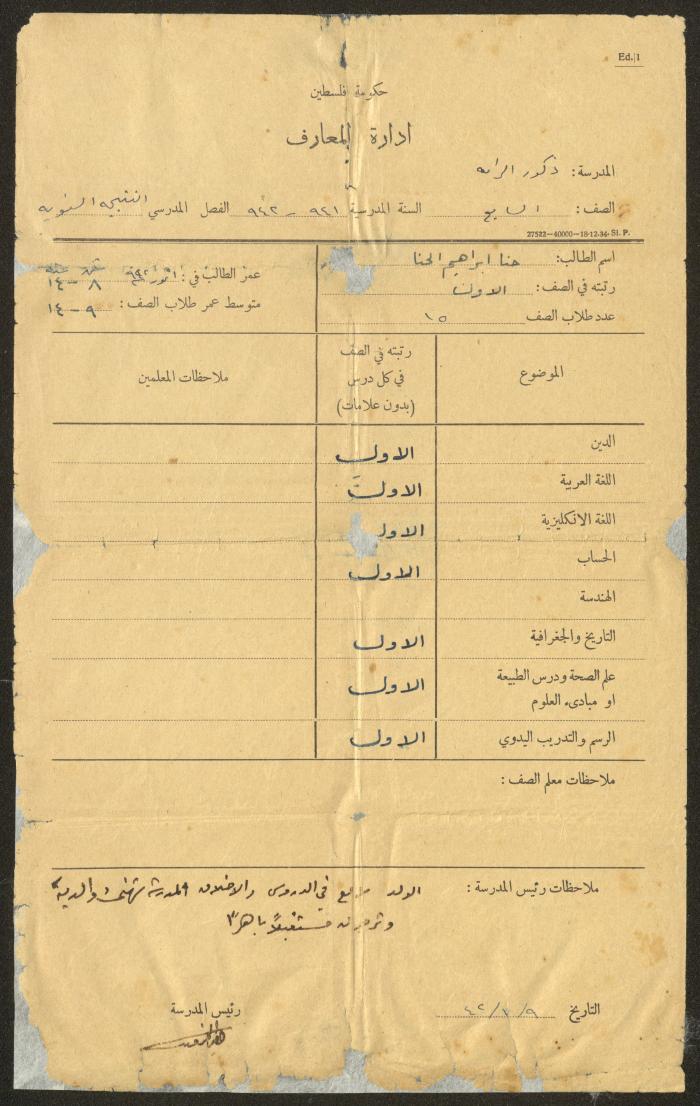 Ed./1
حكومة فلسطين
ادارة المعارف
المدرسة: ذكور الرامه
الصف: السابع السنة المدرسية ٩٤١ – ٩٤٢ الفصل المدرسي النتيجة السنوية
27522—40000—18-12-34. Sl. P.
اسم الطالب: حنا ابراهيم الحنا
عمر الطالب في: ٨ – ١٤
رتبته في الصف: الاول
متوسط عمر طلاب الصف: ٩ – ١٤
عدد طلاب الصف ١٥
الموضوع
رتبته في الصف
في كل درس
(بدون علامات)
ملاحظات المعلمين
الدين الاول
اللغة العربية الاول
اللغة الانكليزية الاول
الحساب الاول
الهندسة
التاريخ والجغرافية الاول
علم الصحة ودرس الطبيعة
او مبادىء العلوم الاول
الرسم والتدريب اليدوي الاول
ملاحظات معلم الصف:
ملاحظات رئيس المدرسة: الولد في الدروس والاخلاق المدرسة تهنئ والديه
وترجو له مستقبلاً باهراً
التاريخ
رئيس المدرسة